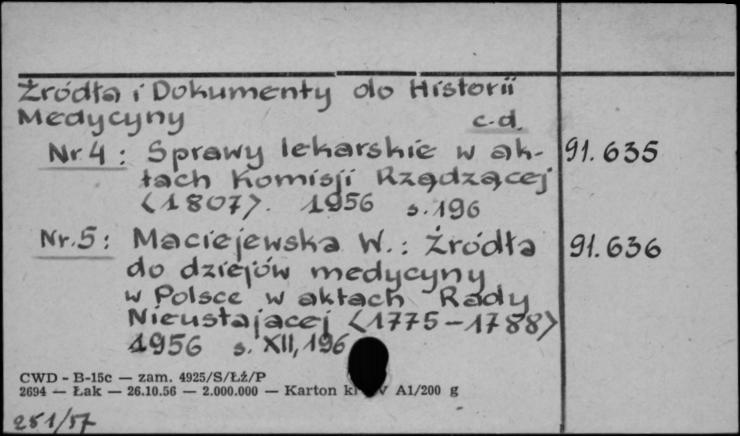 Źródła i Dokumenty do Historii
Medycyny c.d.
Nr 4: Sprawy lekarskie w ak- 91.635
tach Komisji Rządzącej
<1807>. 1956 s. 196
Nr. 5: Maciejewska W.: Źródła 91.636
do dziejów medycyny
w Polsce w aktach Rady
Nieustającej <1775-1788>
1956 s. XII, 196
CWD - B-15c — zam. 4925/S/Łź/P
2694 — Łak — 26.10.56 — 2.000.000 — Karton A1/200 g
251/57